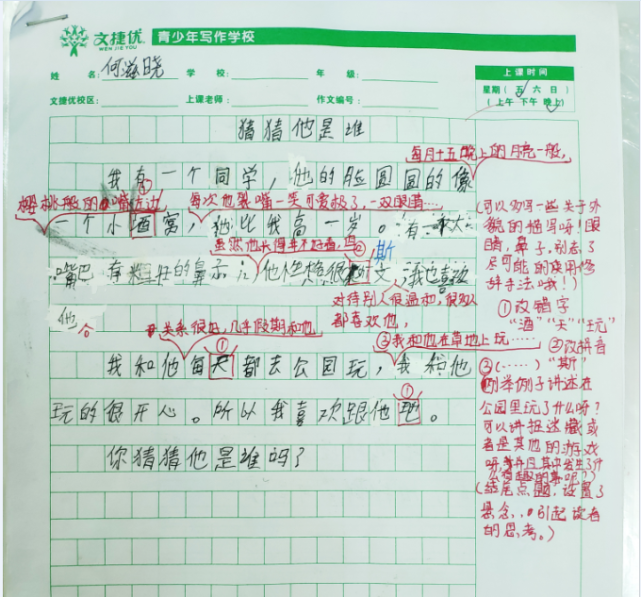 文捷优 青少年写作学校
WEN JIE YOU
姓 名: 何滋晓 学 校: 年 级: 上课时间
星期 ( 五 六 日 )
文捷优校区: 上课老师: 作文编号: ( 上午 下午 晚上 )
猜猜他是谁
每月十五晚上的月亮一般。
我有一个同学，他的脸圆圆的像
樱桃般的 嘴边 每次他裂嘴一笑可爱极了，一双眼睛……
个小酒窝，他比我高一岁。有一
虽然他长得并不好看，
斯
嘴巴 好的鼻子 他性格很 文，我也喜欢
对待别人很温和，很多人
都喜欢他，
他。
关系很好，几乎假期和他 ③我和他在草地上玩……
①
我和他每天都去公园玩，我和他
①
玩的很开心。所以我喜欢跟他玩。
你猜猜他是谁吗？
(可以多写一些关于外
貌的描写哦！眼
睛，鼻子，别忘了
尽可能的使用修
辞手法哦！)
①改错字
“酒”“天”“玩”
②改拼音
③(……) “斯”
举例子讲述在
公园里玩了什么呀？
可以讲捉迷藏或
者是其他的游戏
呀，并且其中发生了什
么有趣的事呢？)
(结尾点题，设置了
悬念，引起读者
的思考。)